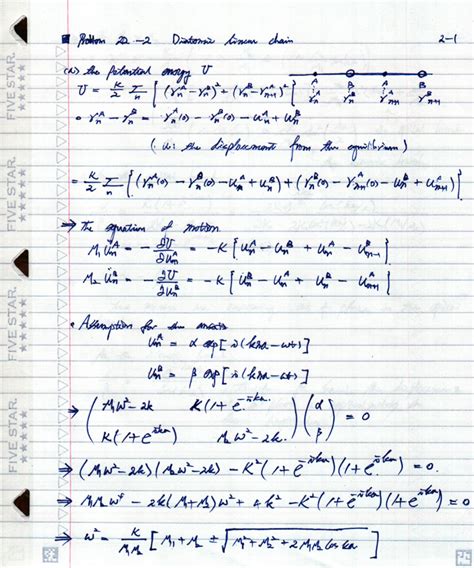 Problem 22-2 Diatomic linear chain 2-1
(a) the potential energy U
A B A B
r_n^A r_n^B r_{n+1}^A r_{n+1}^B
U = K/2 Σ_n [ (r_n^A - r_n^B)^2 + (r_n^B - r_{n+1}^A)^2 ]
• r_n^A - r_n^B = r_n^A(0) - r_n^B(0) - u_n^A + u_n^B
(u: the displacements from the equilibrium)
= K/2 Σ_n [ (r_n^A(0) - r_n^B(0) - u_n^A + u_n^B) + (r_n^B(0) - r_{n+1}^A(0) - u_n^B + u_{n+1}^A) ]
⇒ The equation of motion
M_1 ü_n^A = - ∂U/∂u_n^A = -K [ u_n^A - u_n^B + u_n^A - u_{n-1}^B ]
M_2 ü_n^B = - ∂U/∂u_n^B = -K [ u_n^B - u_n^A + u_n^B - u_{n+1}^A ]
• Assumption for the
u_n^A = α exp[i(kna - ωt)]
u_n^B = β exp[i(kna - ωt)]
⇒ ( M_1ω^2 - 2K K(1 + e^{-ika}) ) ( α ) = 0
( K(1 + e^{ika}) M_2ω^2 - 2K ) ( β )
⇒ (M_1ω^2 - 2K)(M_2ω^2 - 2K) - K^2(1 + e^{-ika})(1 + e^{ika}) = 0.
⇒ M_1M_2ω^4 - 2K(M_1 + M_2)ω^2 + 4K^2 - K^2(1 + e^{-ika})(1 + e^{ika}) = 0
⇒ ω^2 = K/(M_1M_2) [ M_1 + M_2 ± √(M_1^2 + M_2^2 + 2M_1M_2 cos ka) ]
FIVE STAR.
FIVE STAR.
FIVE STAR.
FIVE STAR.